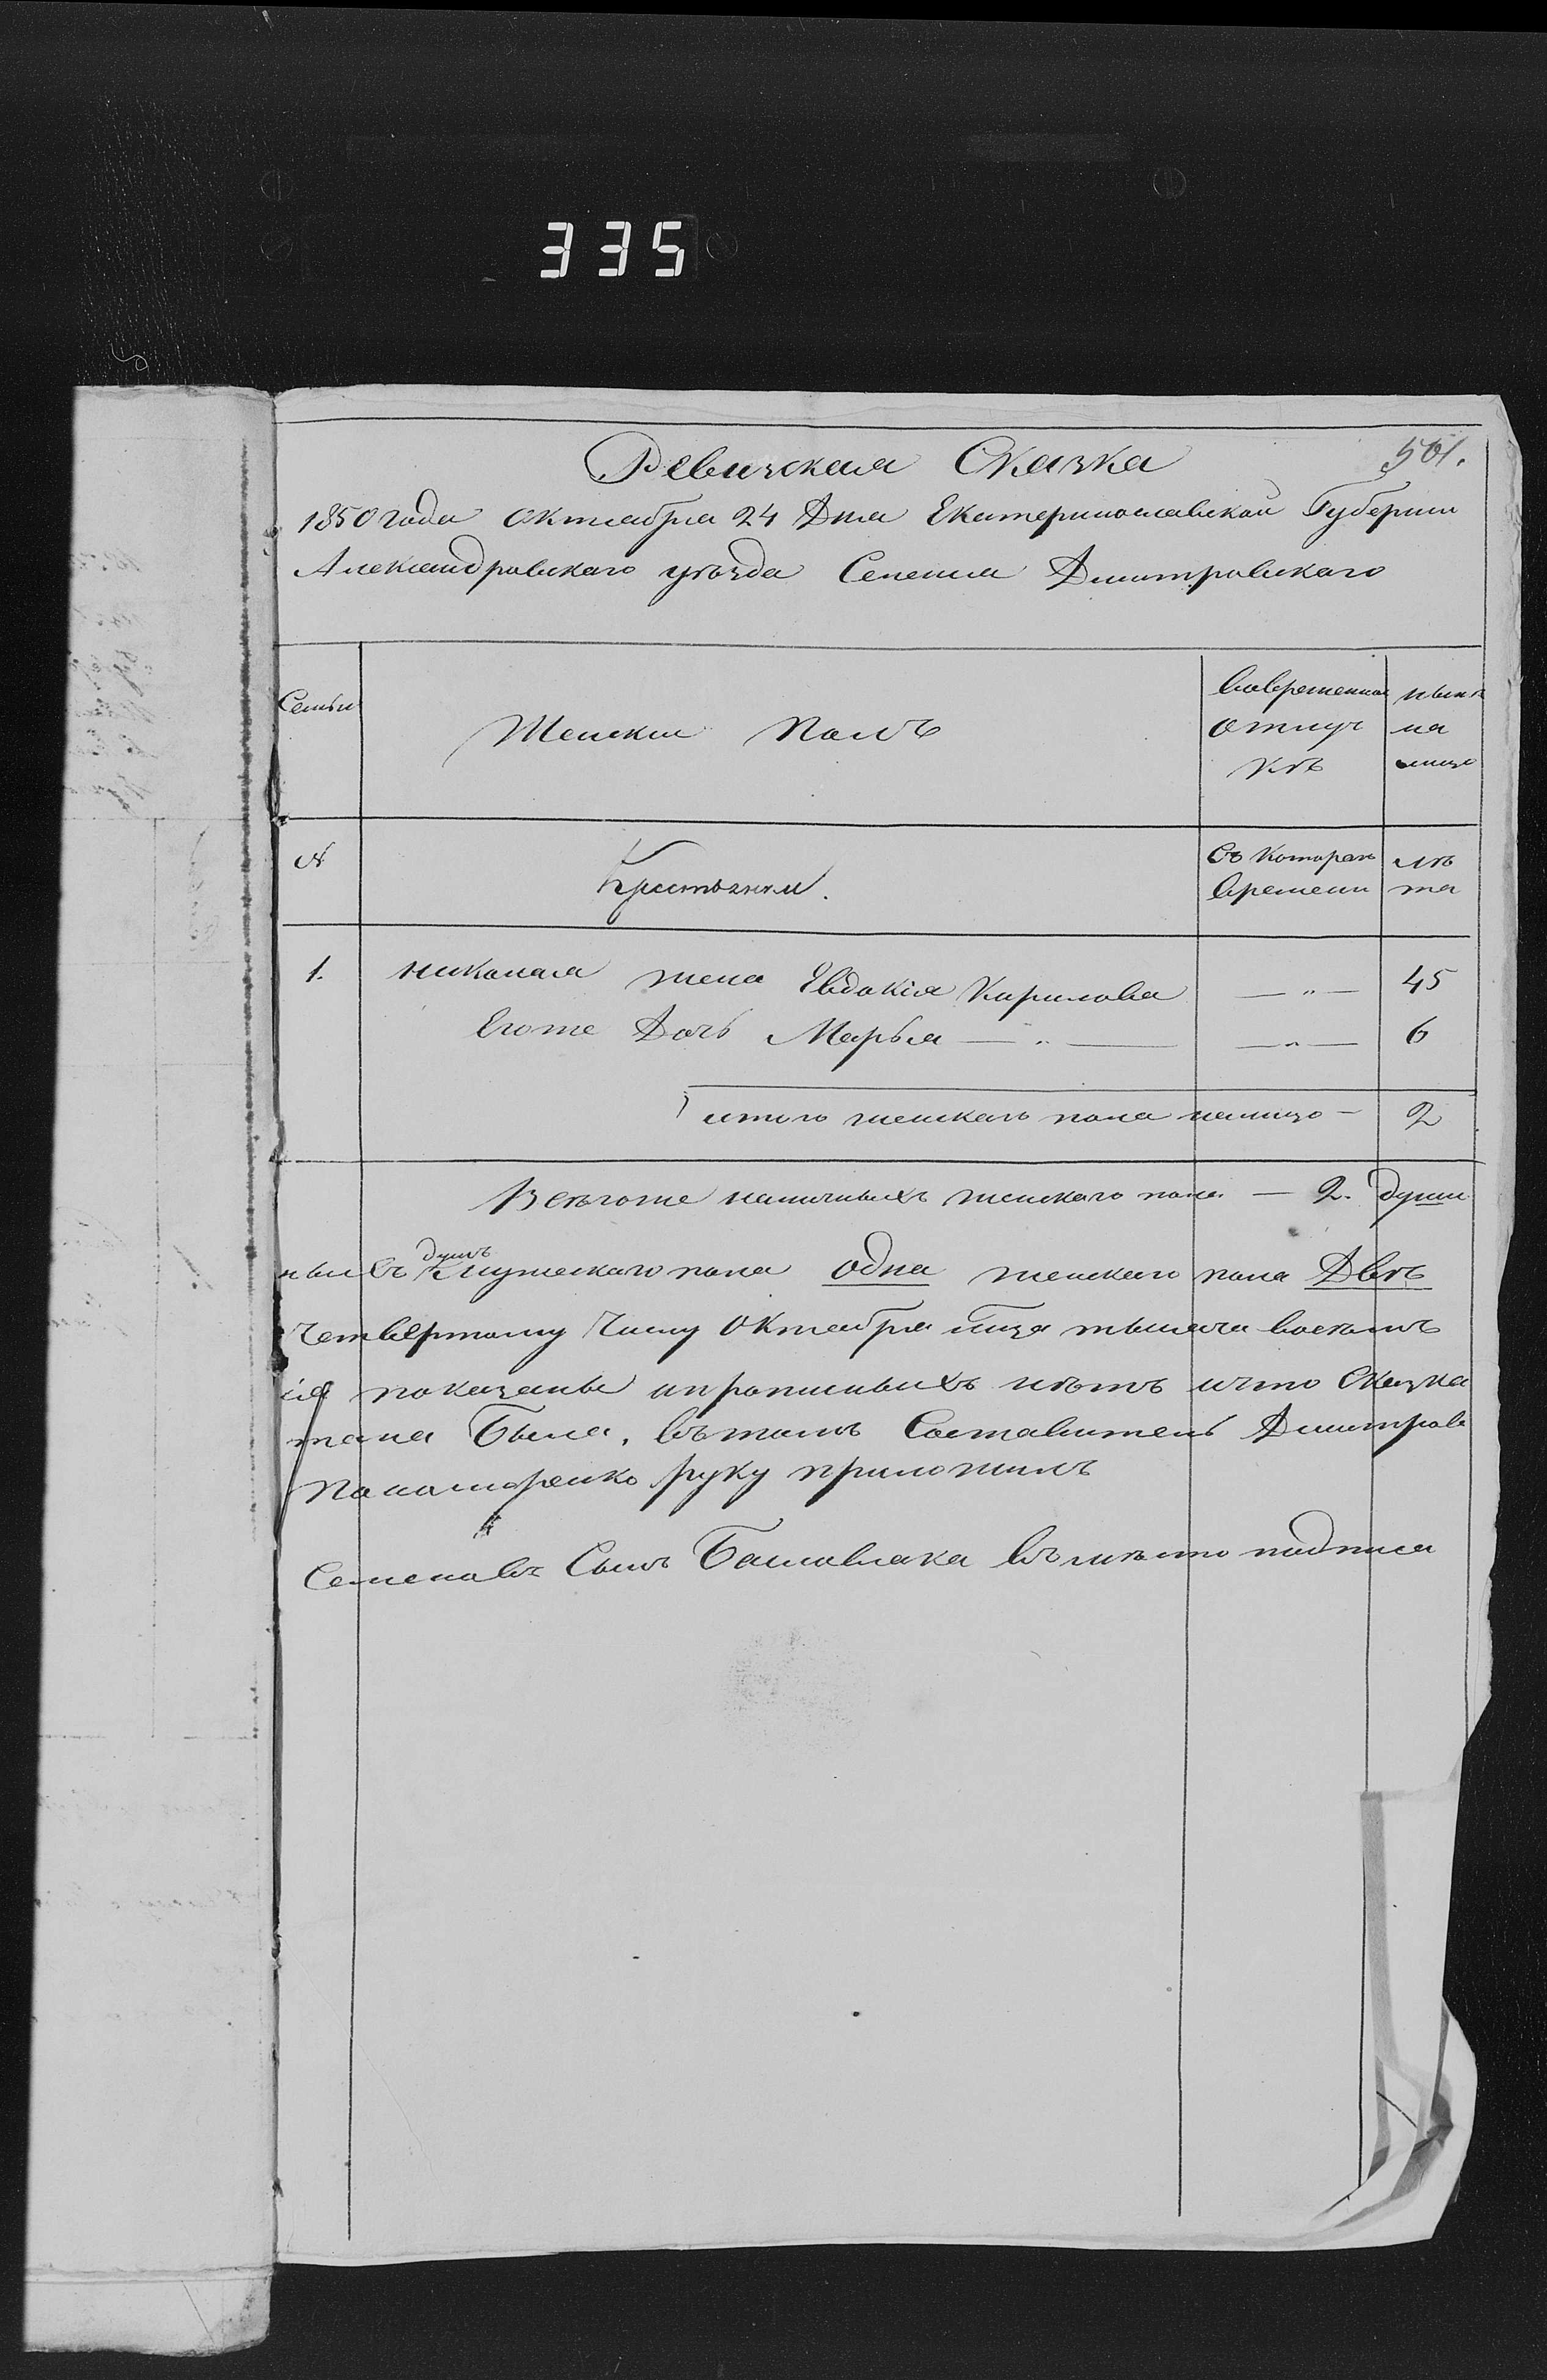 335
501.
Ревизская Сказка
1850 года октября 24 Дня Екатеринославской Губернии
Александровского уѣзда Селения Дмитровского
Семьи
Женский Полъ
Вовременной отлучкѣ
нынѣ на лицо
№
Крестьянки.
Съ которого времени
лѣта
1. николая жена Евдокія Кирилова — " — 45
Его же Дочь Марья — " — — " — 6
итого женскаго пола налицо — 2
Всего же наличныхъ женского пола — 2. души
душъ
ныхъ мужескаго пола одна женскаго пола Двѣ
четвертому числу Октября тысяча восемъ
ія показаны ипрописныхъ нѣтъ ичто Сказка
тана была, въ томъ Составитель Дмитров
Пономаренко руку приложилъ
Семеновъ Сынъ Башовлака